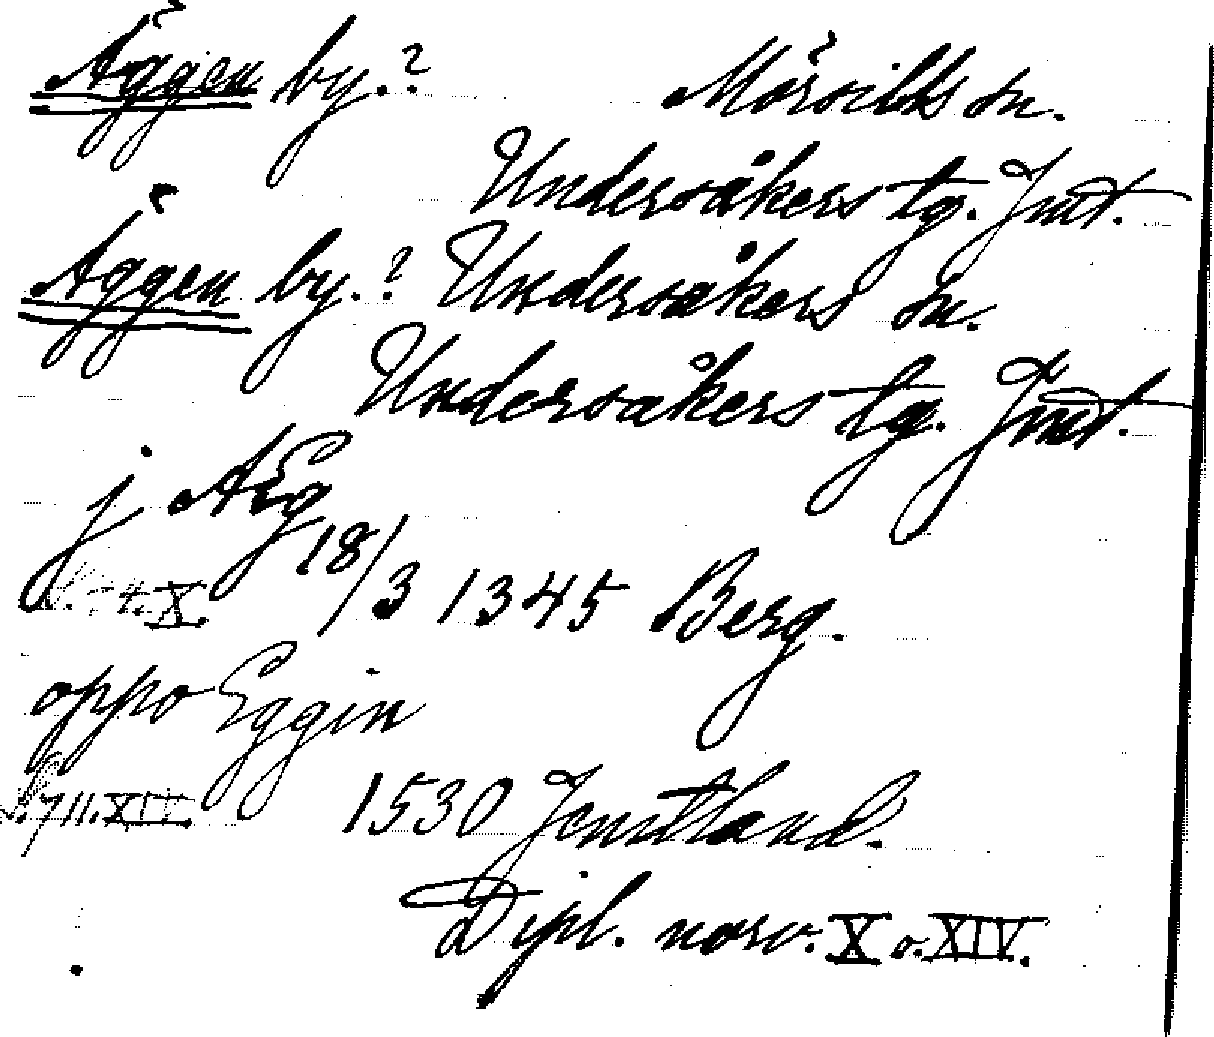 Äggen by.? Mörsills sn.
Undersåkers tg. Jmt.
Äggen by.? Undersåkers sn.
Undersåkers tg. Jmt.
j Æg
18/3 1345 Berg.
X.
oppo Eggin
1530 Jemtland.
Dipl. norv. X o. XIV.